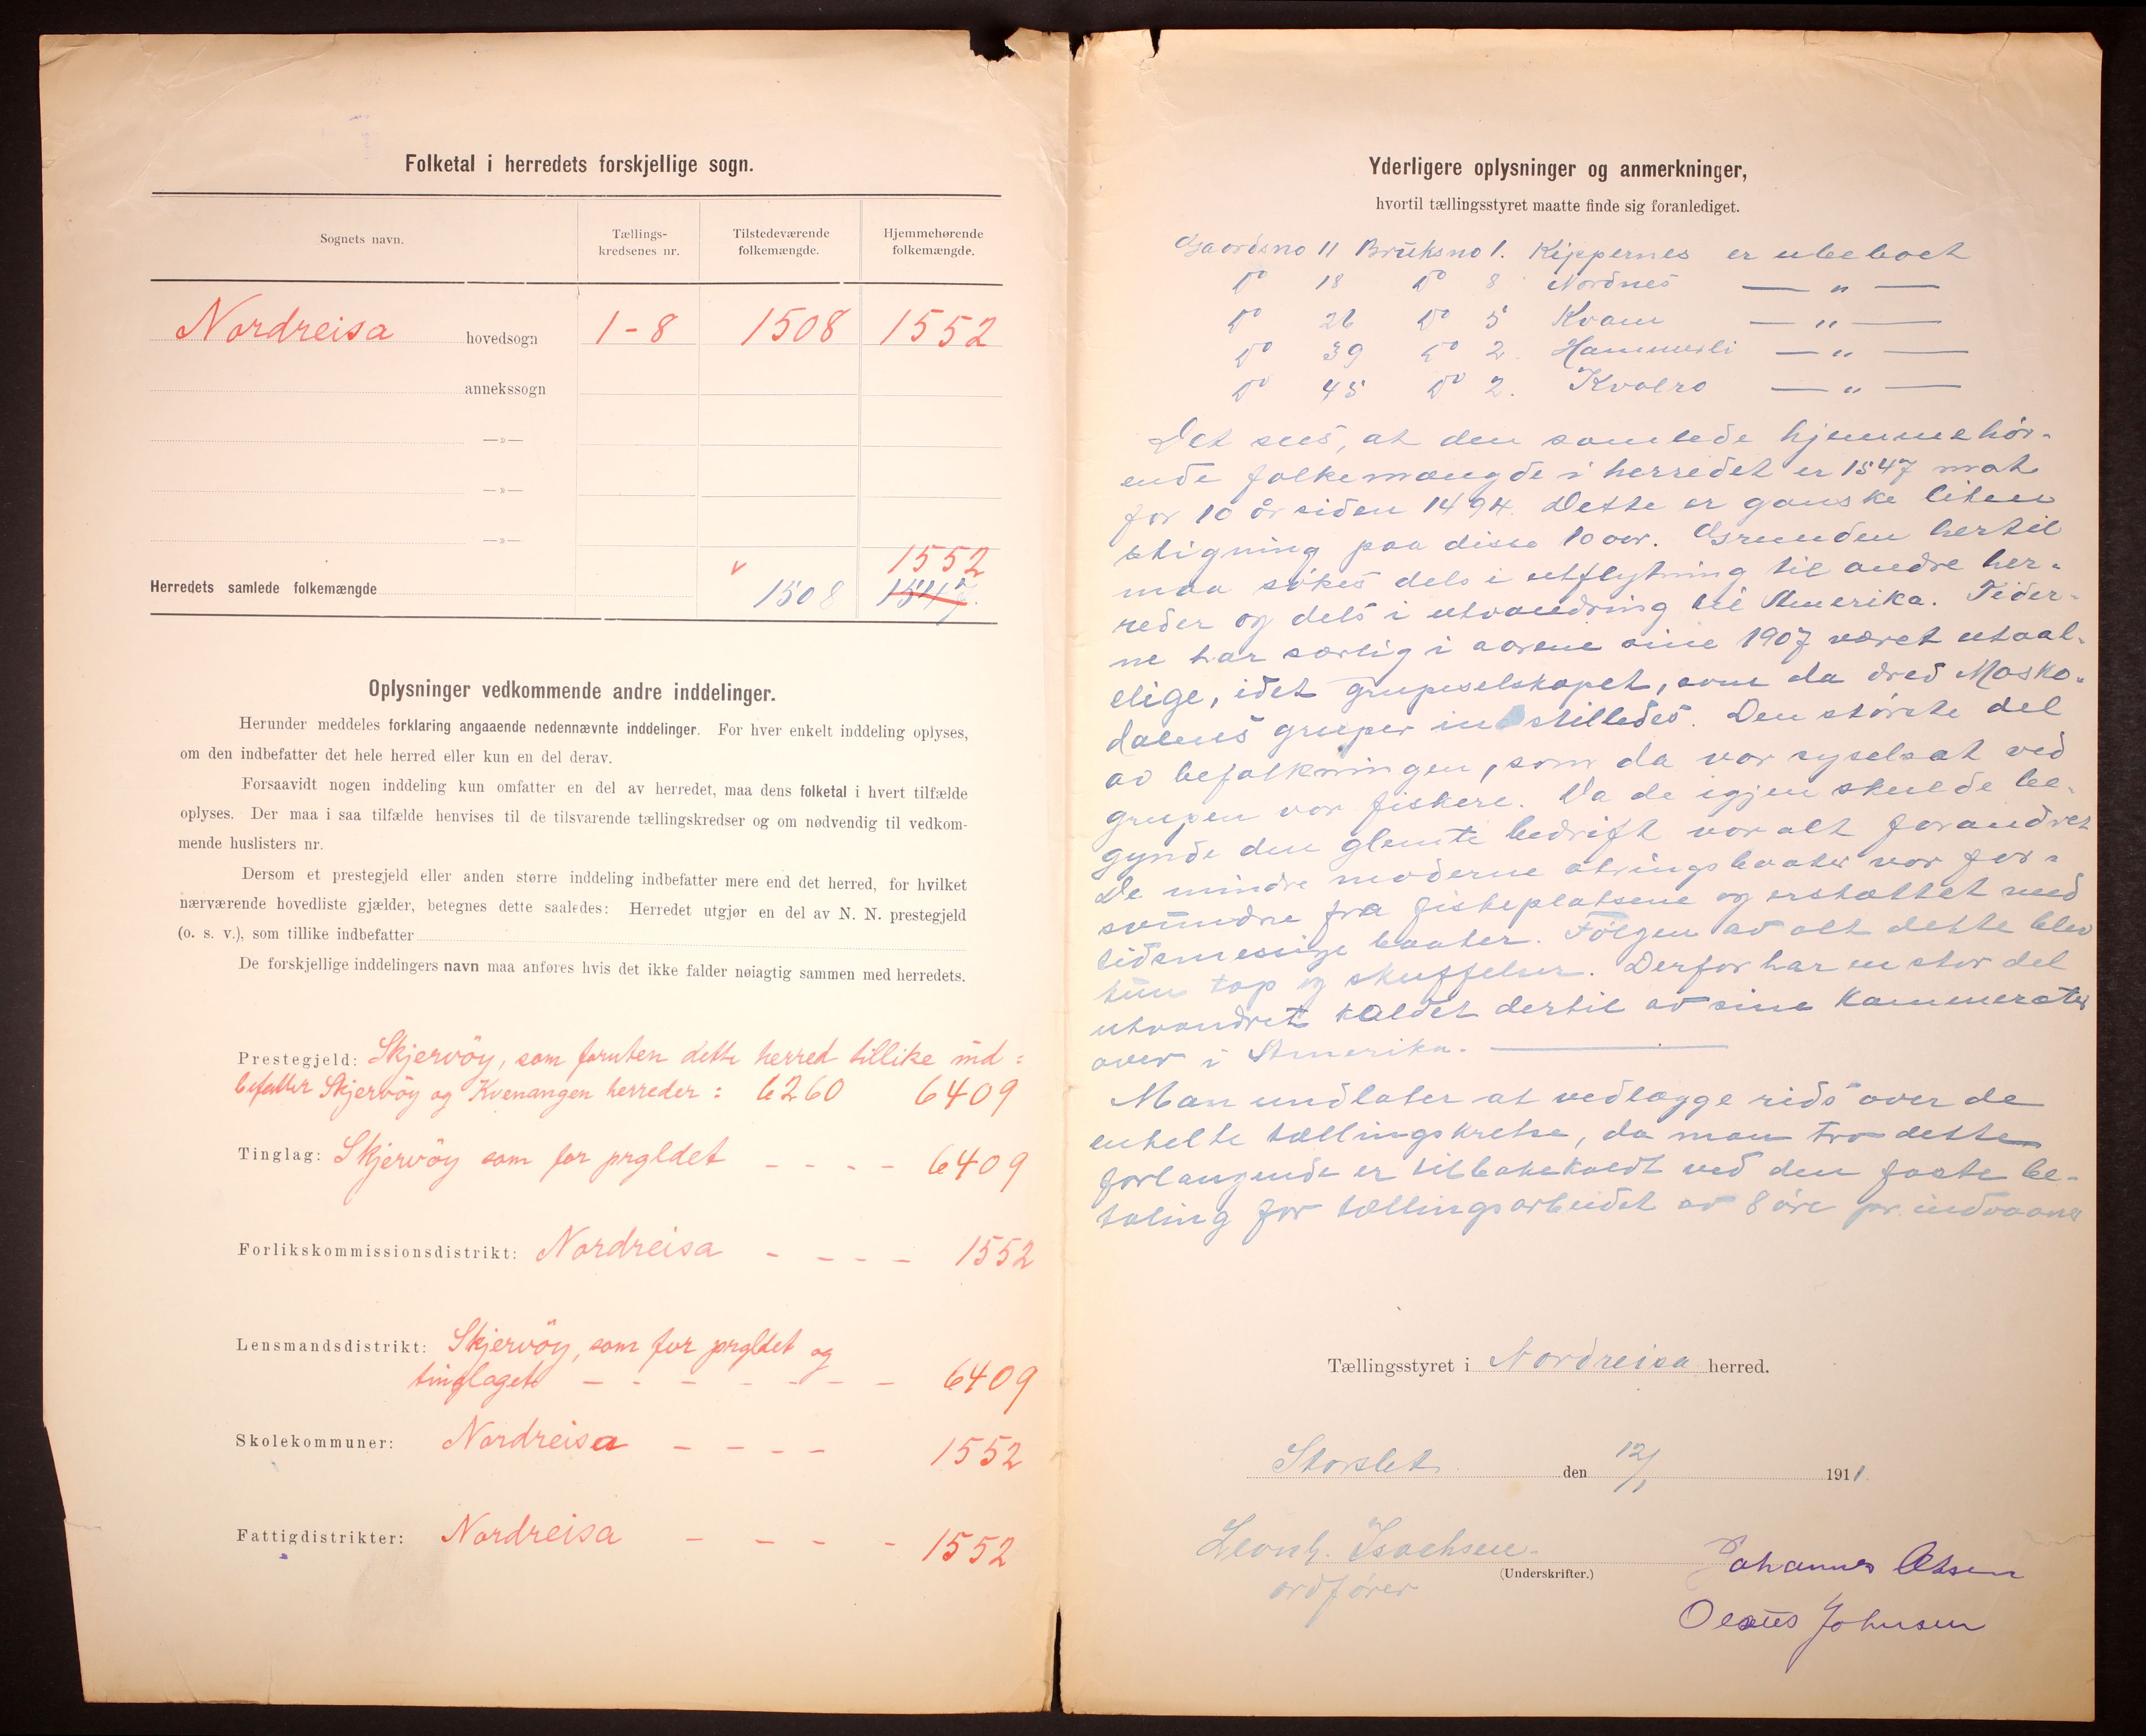 Folketal i herredets forskjellige sogn.
Sognets navn.
Tællings-
kredsenes nr.
Tilstedeværende
folkemængde.
Hjemmehørende
folkemængde.
Nordreisa hovedsogn 1-8 1508 1552
annekssogn
—»—
—»—
—»—
1552
Herredets samlede folkemængde 1508 1547.
Oplysninger vedkommende andre inddelinger.
Herunder meddeles forklaring angaaende nedennævnte inddelinger. For hver enkelt inddeling oplyses,
om den indbefatter det hele herred eller kun en del derav.
Forsaavidt nogen inddeling kun omfatter en del av herredet, maa dens folketal i hvert tilfælde
oplyses. Der maa i saa tilfælde henvises til de tilsvarende tællingskredser og om nødvendig til vedkom-
mende huslisters nr.
Dersom et prestegjeld eller anden større inddeling indbefatter mere end det herred, for hvilket
nærværende hovedliste gjælder, betegnes dette saaledes: Herredet utgjør en del av N. N. prestegjeld
(o. s. v.), som tillike indbefatter
De forskjellige inddelingers navn maa anføres hvis det ikke falder nøiagtig sammen med herredets.
Prestegjeld: Skjervöy, som foruten dette herred tillike ind=
befatter Skjervöy og Kvenangen herreder: 6260 6409
Tinglag: Skjervöy som for prgldet - - - - 6409
Forlikskommissionsdistrikt: Nordreisa - - - - 1552
Lensmandsdistrikt: Skjervöy, som for prgldet og
tinglaget - - - - - - - 6409
Skolekommuner: Nordreisa - - - - 1552
Fattigdistrikter: Nordreisa - - - - 1552
Yderligere oplysninger og anmerkninger,
hvortil tællingsstyret maatte finde sig foranlediget.
Gaardsno 11 Bruksno 1. Kippernes er ubeboet
Do 18 Do 8 Nordnes — " —
Do 26 Do 5 Kvam — " —
Do 39 Do 2. Hammerli — " —
Do 45 Do 2. — " —
Det sees, at den samlede hjemmehör-
ende folkemængde i herredet er 1547 mot
for 10 år siden 1494. Dette er ganske liten
stigning paa disse 10 aar. Grunden hertil
maa sökes dels i utflytning til andre her-
reder og dels i utvandring til Amerika. Tider-
ne har særlig i aarene sine 1907 været utaal-
elige, idet grupeselskapet, som da dred Mosko-
dalens gruper instilledes. Den störste del
av befolkningen, som da var syselsat ved
grupen var fiskere. Da de igjen skulde be-
gynde den glemte bedrift var alt forandret
De mindre moderne otringsbaater var for-
svundne fra fiskeplatsene og erstattet med
tidsmessige baater. Fölgen av alt dette blev
kun tap og skuffelser. Derfor har en stor del
utvandret kaldet dertil av sine kammerater
over i Amerika. —
Man undlater at vedlægge rids over de
enkelte tællingskretse, da man tro dette
forlangende er tilbakekaldt ved den faste be-
taling for tællingsarbeidet av 8 öre pr. indvaaner
Tællingsstyret i Nordreisa herred.
Storslet den 12/1 1911.
Leonh. Isachsen.
ordförer
(Underskrifter.)
Johannes Olsen
Olaus Johnsen